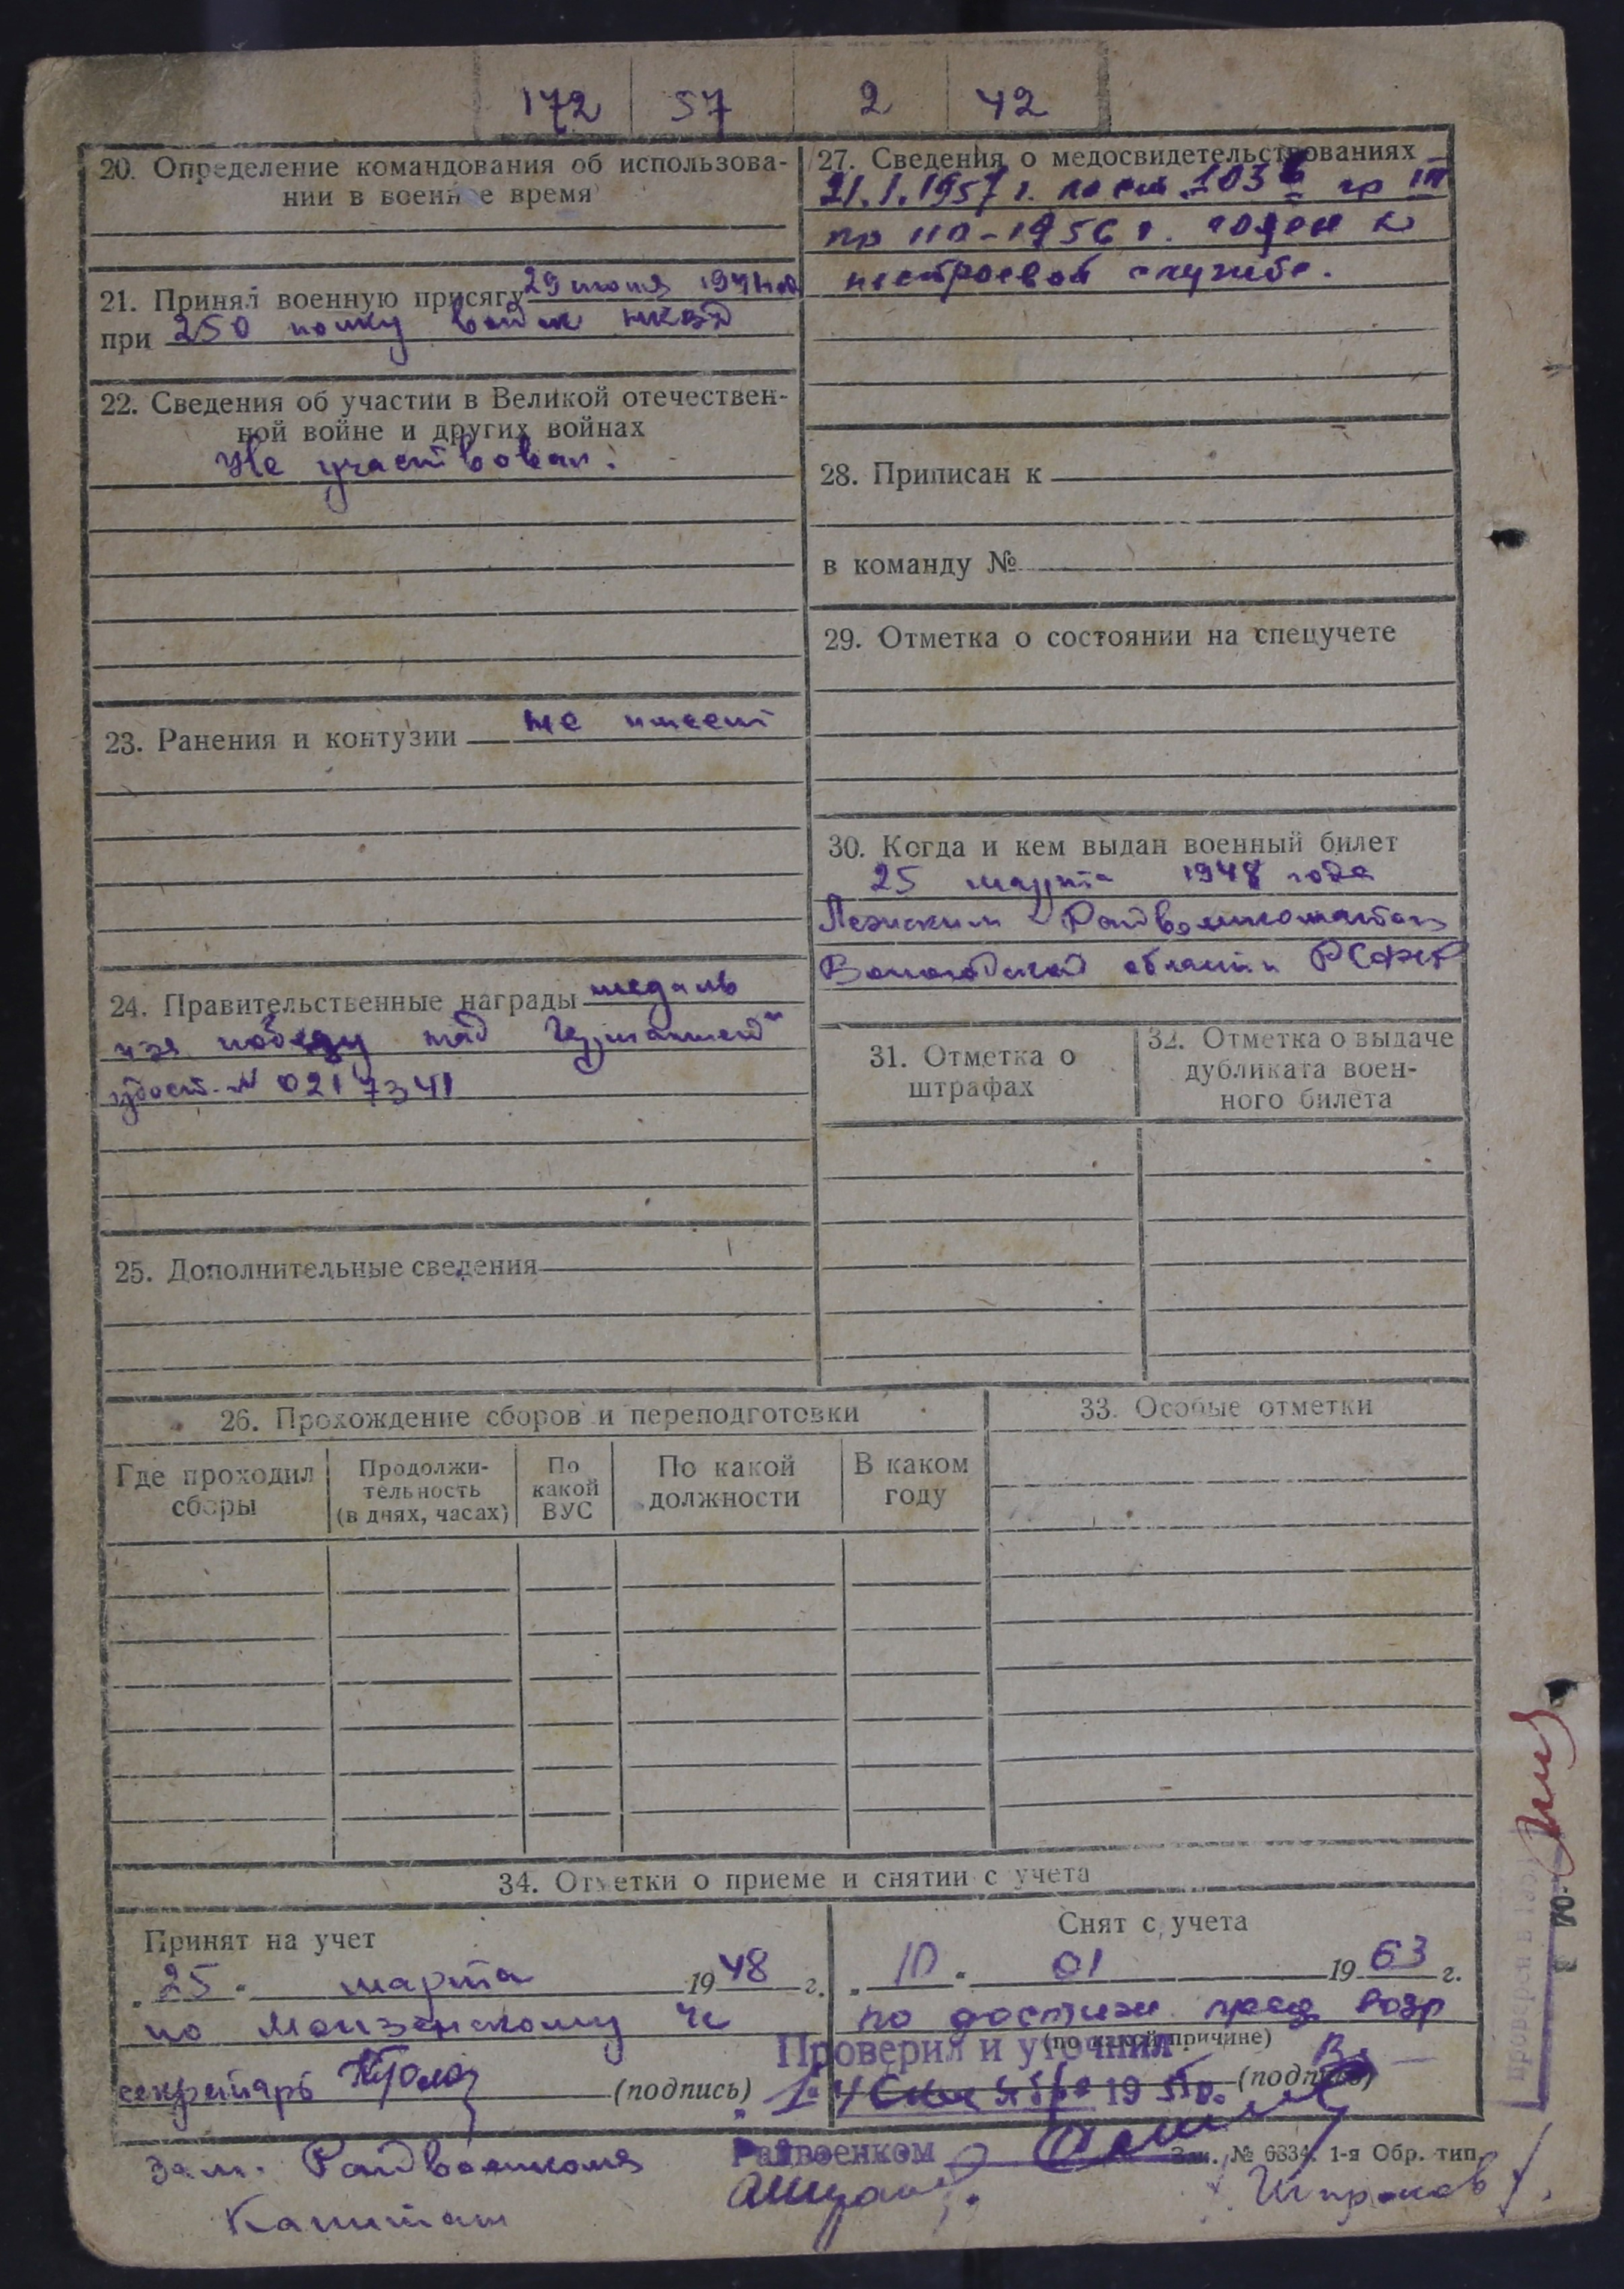 172 57 2 42
20. Определение командования об использова-
нии в военное время
21. Принял военную присягу 29 июня 1941 год
при 250 полку войск НКВД
22. Сведения об участии в Великой отечествен-
ной войне и других войнах
Не участвовал.
23. Ранения и контузии не имеет
24. Правительственные награды медаль
"За победу над Германией"
удост. № 0217341
25. Дополнительные сведения
27. Сведения о медосвидетельствованиях
21.1.1957 г. по ст. 103 гр III
пр 110-1956 г. годен к
нестроевой службе.
28. Приписан к
в команду №
29. Отметка о состоянии на спецучете
30. Когда и кем выдан военный билет
25 марта 1948 года
Лежским Райвоенкоматом
Вологодской области РСФСР
31. Отметка о
штрафах
32. Отметка о выдаче
дубликата воен-
ного билета
26. Прохождение сборов и переподготовки
Где проходил
сборы
Продолжи-
тельность
(в днях, часах)
По
какой
ВУС
По какой
должности
В каком
году
33. Особые отметки
34. Отметки о приеме и снятии с учета
Принят на учет
25 марта 1948 г.
по Монзенскому
секретарь (подпись)
Зам. Райвоенкома
Капитан
Снят с учета
10. 01 1963 г.
по достиж. пред возр
(по какой причине)
(подпись)
Проверил и уточнил
19
Райвоенком
Зак. № 6334. 1-я Обр. тип.